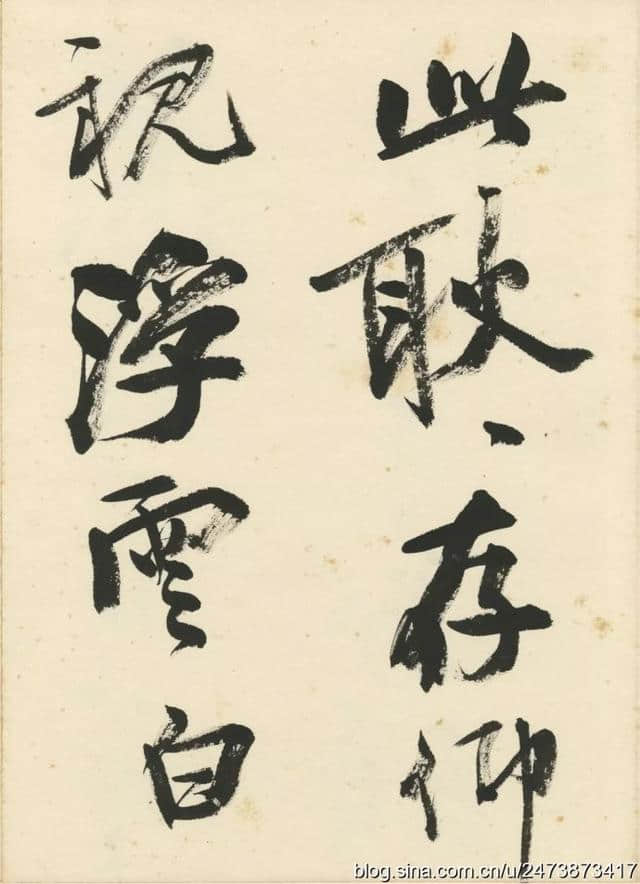 此耿、存仰
視浮雲白
blog.sina.com.cn/u/2473873417